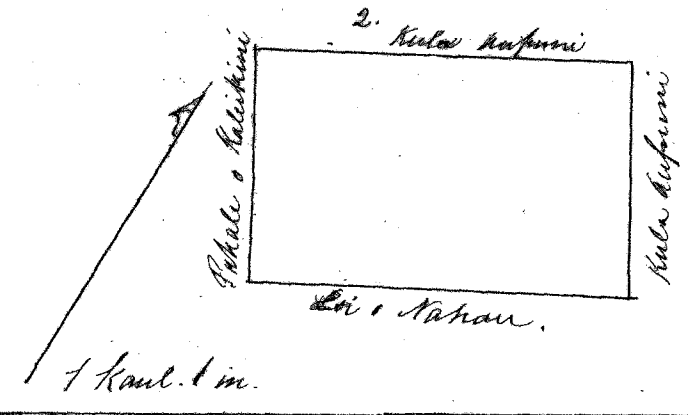 2.
Kula Aupuni
Pahale o Kaleikini
Kula Aupuni
Loi o Nahau.
1 Kaul. 1 in.